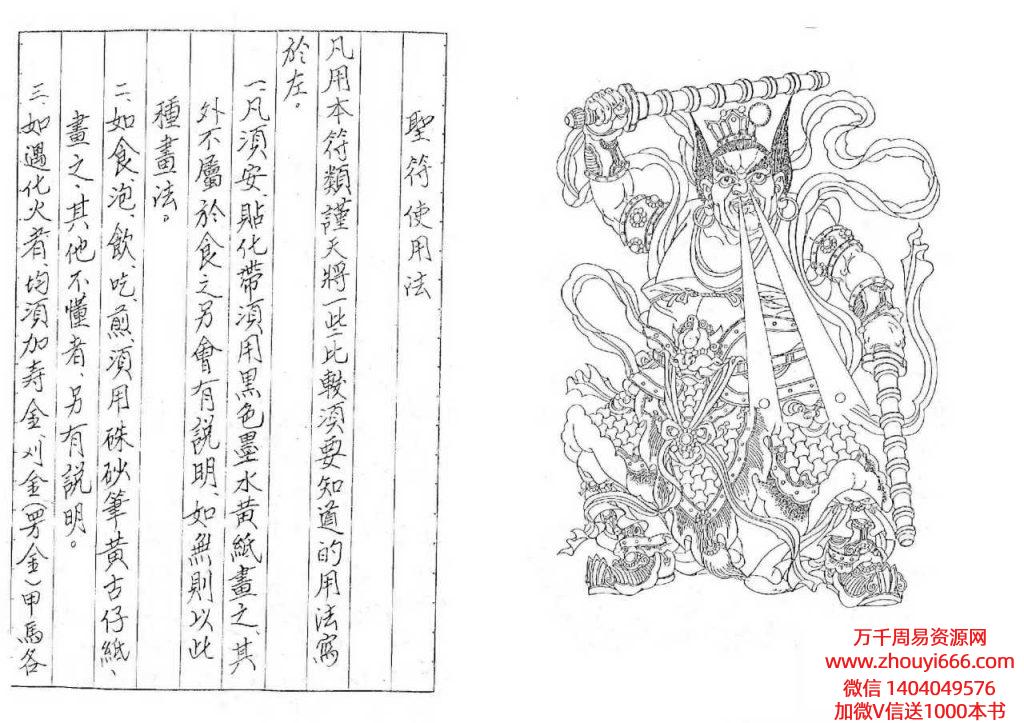 聖符使用法
凡用本符類謹天將一些比較須要知道的用法寫
於左。
一、凡須安、貼化帶須用黑色墨水黄紙畫之、其
外不屬於食之另會有説明、如無則以此
種畫法。
二、如食泡、飲、吃、煎、須用硃砂筆、黄古仔紙、
畫之、其他不懂者、另有説明。
三、如遇化火者、均須加寿金、刈金(男金)甲馬各
万千周易资源网
www.zhouyi666.com
微信 1404049576
加微V信送1000本书